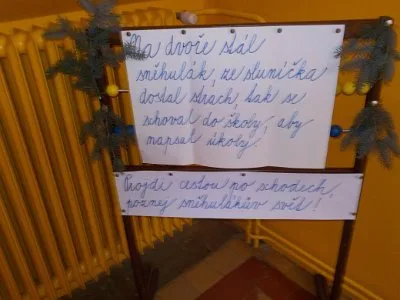 Na dvoře stál
sněhulák, ze sluníčka
dostal strach, tak se
schoval do školy, aby
napsal úkoly.
Projdi cestou po schodech,
poznej sněhulákův svět!